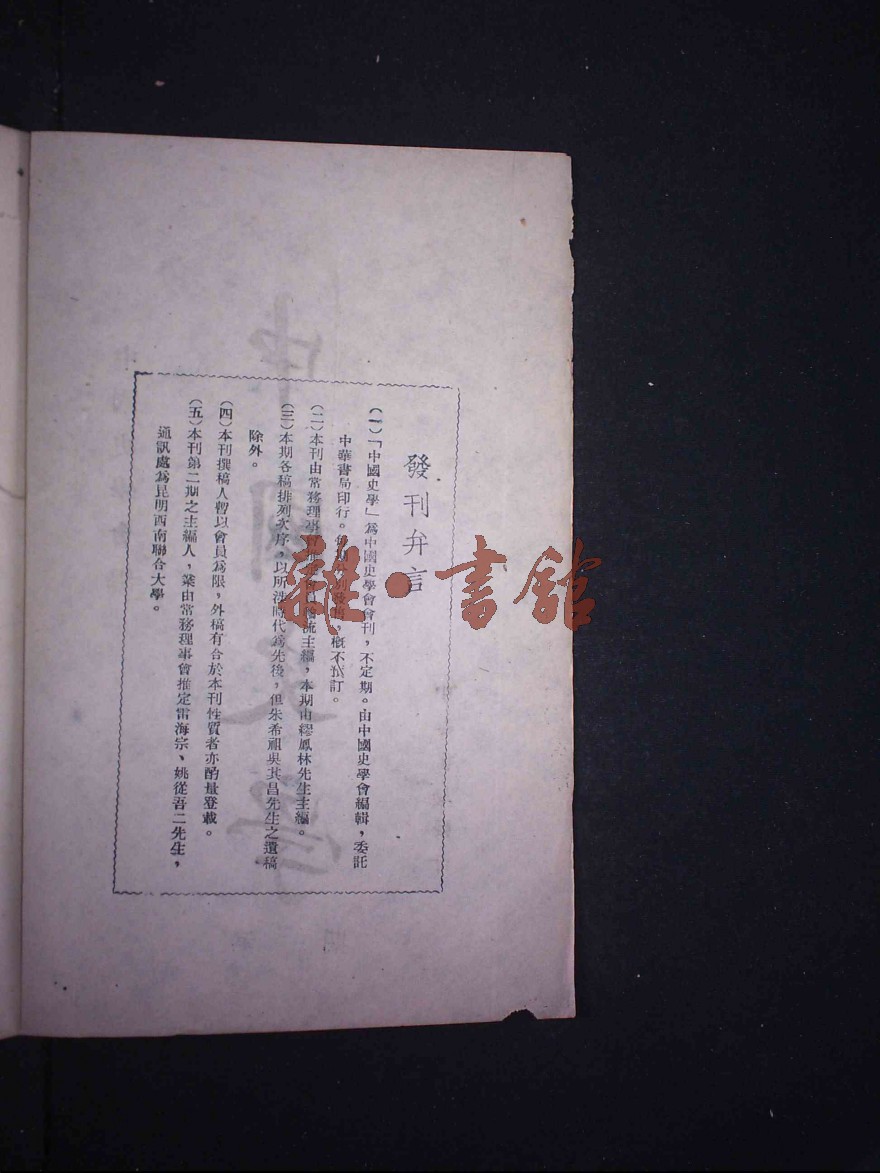 發刊弁言
(一)「中國史學」為中國史學會會刊，不定期。由中國史學會編輯，委託
中華書局印行。每期分別發售，概不預訂。
(二)本刊由常務理事輪流主編，本期由繆鳳林先生主編。
(三)本期各稿排列次序，以所涉時代為先後，但朱希祖吳其昌先生之遺稿
除外。
(四)本刊撰稿人暫以會員為限，外稿有合於本刊性質者亦酌量登載。
(五)本刊第二期之主編人，業由常務理事會推定雷海宗、姚從吾二先生，
通訊處為昆明西南聯合大學。
雜·書館